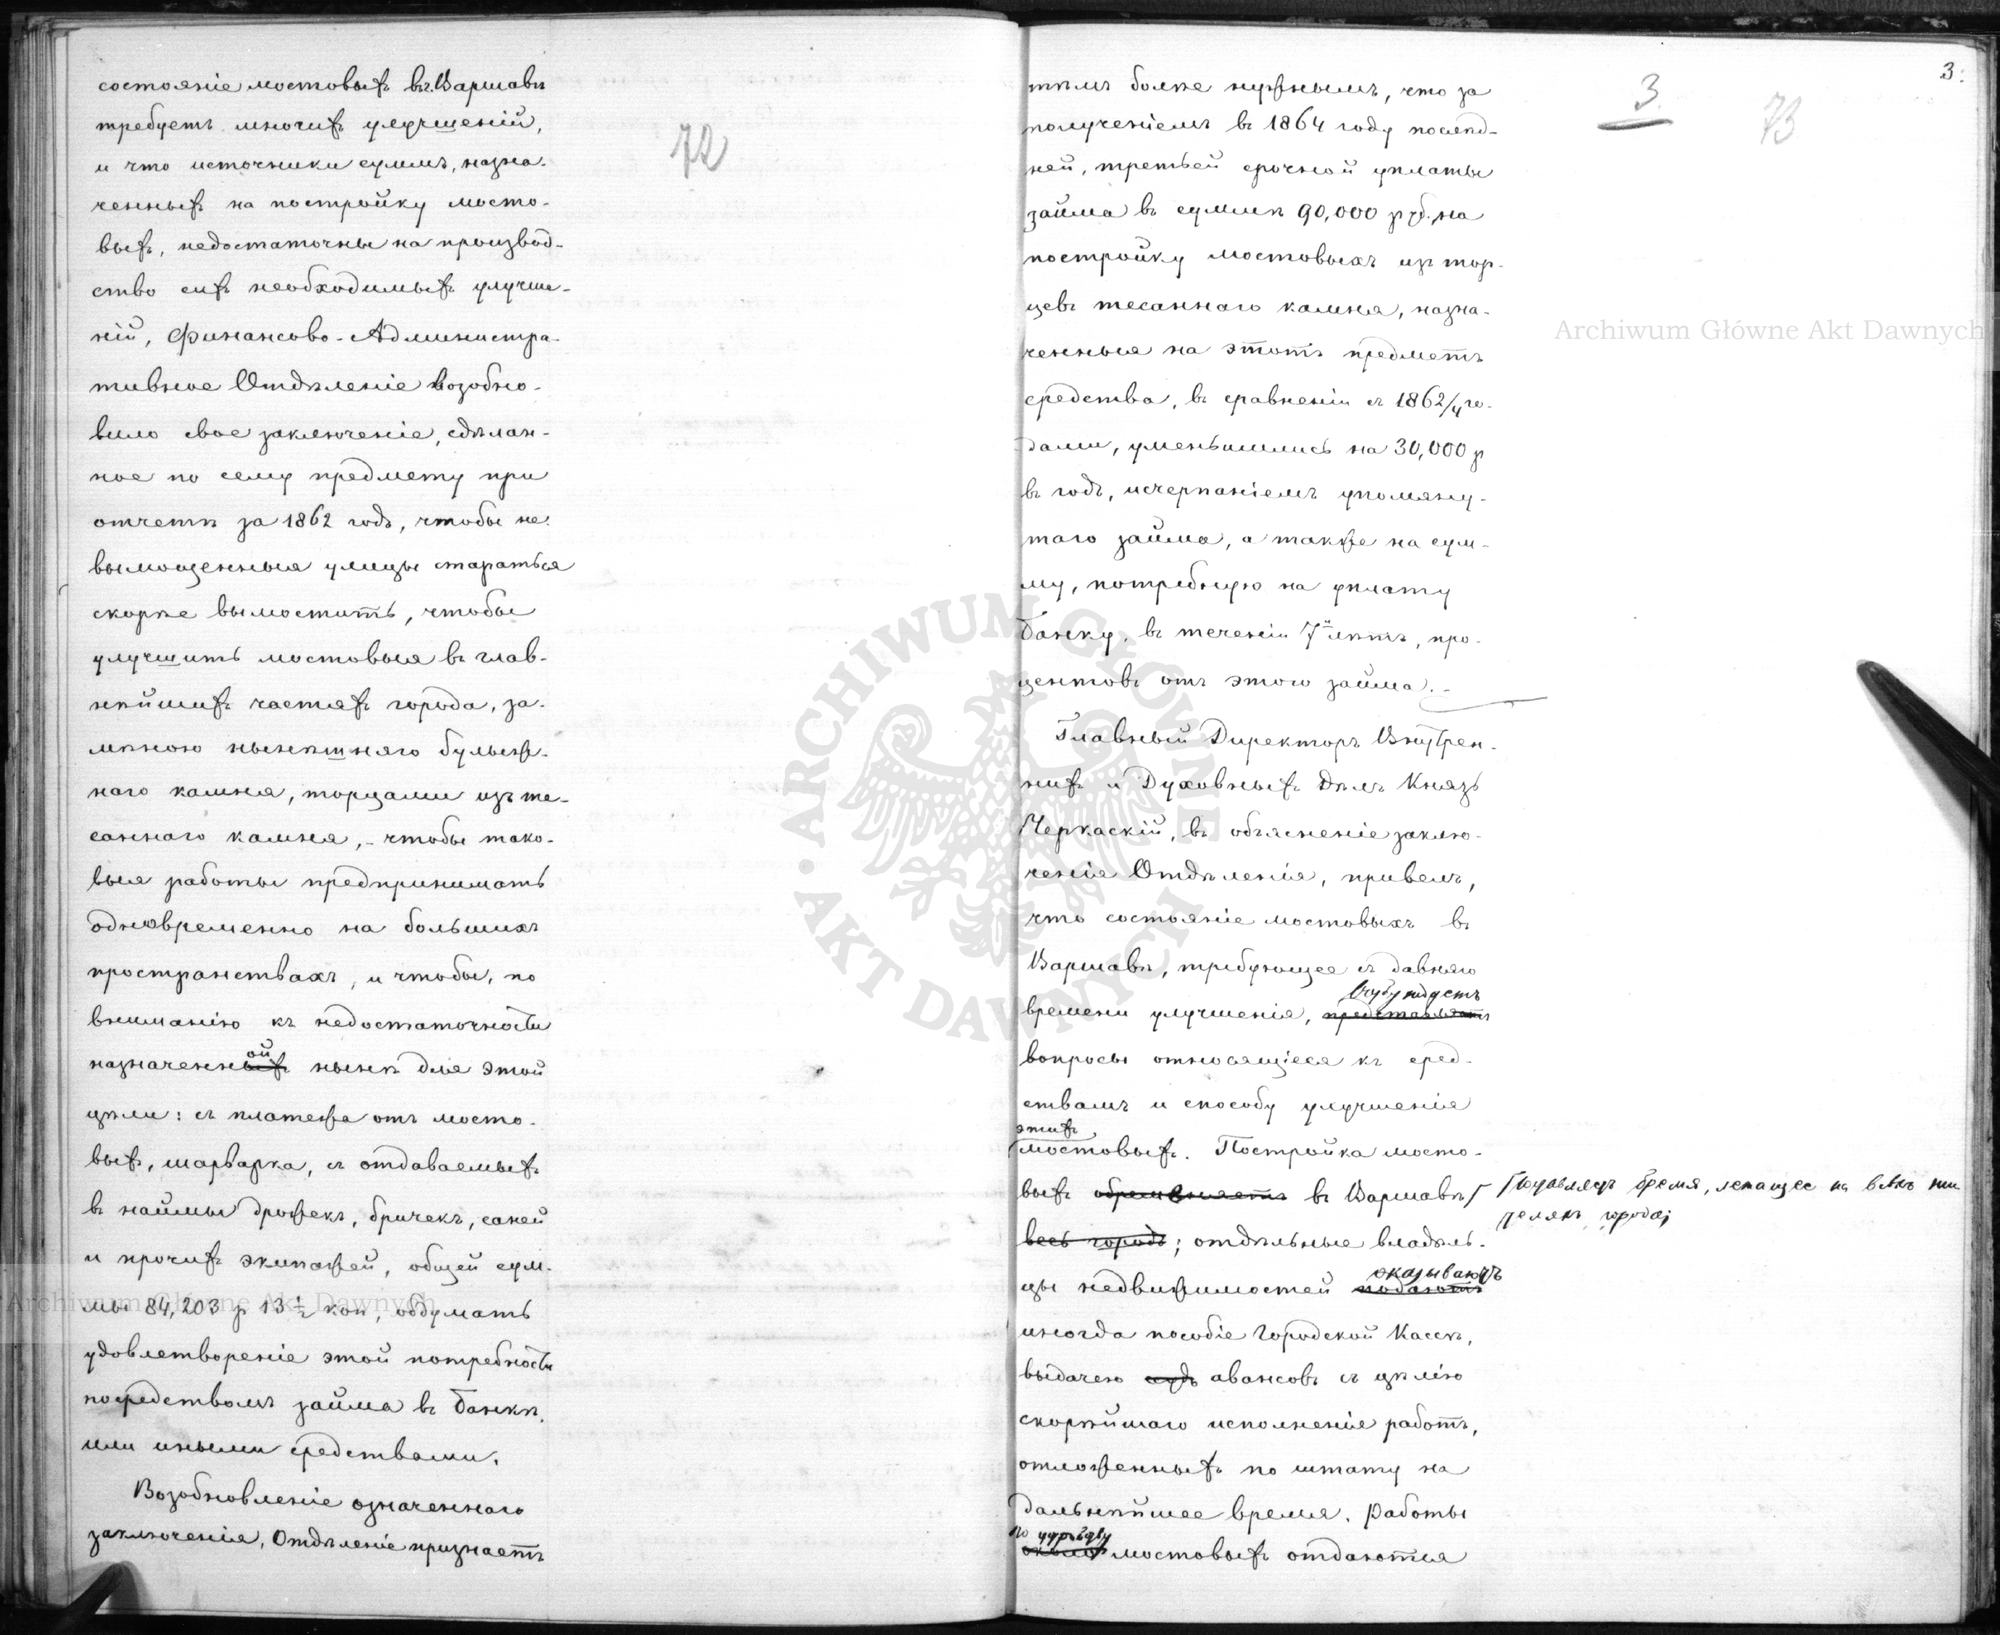 72
состоянiе мостовыхъ въ Варшавѣ
требуетъ многихъ улучшенiй,
и что источники суммъ, назна-
ченныхъ на постройку мосто-
выхъ, недостаточны на производ-
ство сихъ необходимыхъ улучше-
нiй, Финансово-Администра-
тивное Отдѣленiе возобно-
вило свое заключенiе, сдѣлан-
ное по сему предмету при
отчетѣ за 1862 годъ, чтобы не
вымощенныя улицы стараться
скорѣе вымостить, чтобы
улучшить мостовыя въ глав-
нѣйшихъ частяхъ города, за-
мѣною нынѣшняго булыж-
наго камня, торцами изъ те-
саннаго камня, - чтобы тако-
выя работы предпринимать
одновременно на большихъ
пространствахъ, и чтобы, по
вниманiю къ недостаточности
назначенныхъ ой нынѣ для этой
цѣли: съ платежа отъ мосто-
выхъ, шарварка, съ отдаваемыхъ
въ наймы дрожекъ, бричекъ, саней
и прочихъ экипажей, общей сум-
мы 84,203 р 13 1/2 коп, обдумать
удовлетворенiе этой потребности
посредствомъ займа въ Банкѣ,
или иными средствами.
Возобновленiе означеннаго
заключенiя, Отдѣленiе признаетъ
3.
3
73
тѣмъ болѣе нужнымъ, что за
полученiемъ въ 1864 году послѣд-
ней, третьей срочной уплаты
займа въ суммѣ 90,000 руб. на
постройку мостовыхъ изъ тор-
цевъ тесаннаго камня, назна-
ченныя на этотъ предметъ
средства, въ сравненiи съ 1862/4 го-
дами, уменьшились на 30,000 р
въ годъ, исчерпанiемъ упомяну-
таго займа, а также на сум-
му, потребную на уплату
Банку, въ теченiи 7и лѣтъ, про-
центовъ отъ этого займа. -
Главный Директоръ Внутрен-
нихъ и Духовныхъ Дѣлъ Князь
Черкаскiй, въ объясненiе заклю-
ченiя Отдѣленiя, привелъ,
что состоянiе мостовыхъ въ
Варшавѣ, требующее съ давняго
возбуждаетъ
времени улучшенiя, представляетъ
вопросы относящiеся къ сред-
ствамъ и способу улучшенiя
этихъ
мостовыхъ. Постройка мосто-
выхъ обременяетъ въ Варшавѣ
составляетъ бремя, лежащее на всѣхъ жи
телякъ города;
весь городъ; отдѣльные владѣль-
оказываютъ
цы недвижимостей подаютъ
иногда пособiе Городской Кассѣ,
выдачею авансовъ съ цѣлiю
скорѣйшаго исполненiя работъ,
отложенныхъ по штату на
дальнѣйшее время. Работы
по
мостовыхъ отдаются
Archiwum Główne Akt Dawnych
Archiwum Główne Akt Dawnych
ARCHIWUM GŁÓWNE AKT DAWNYCH